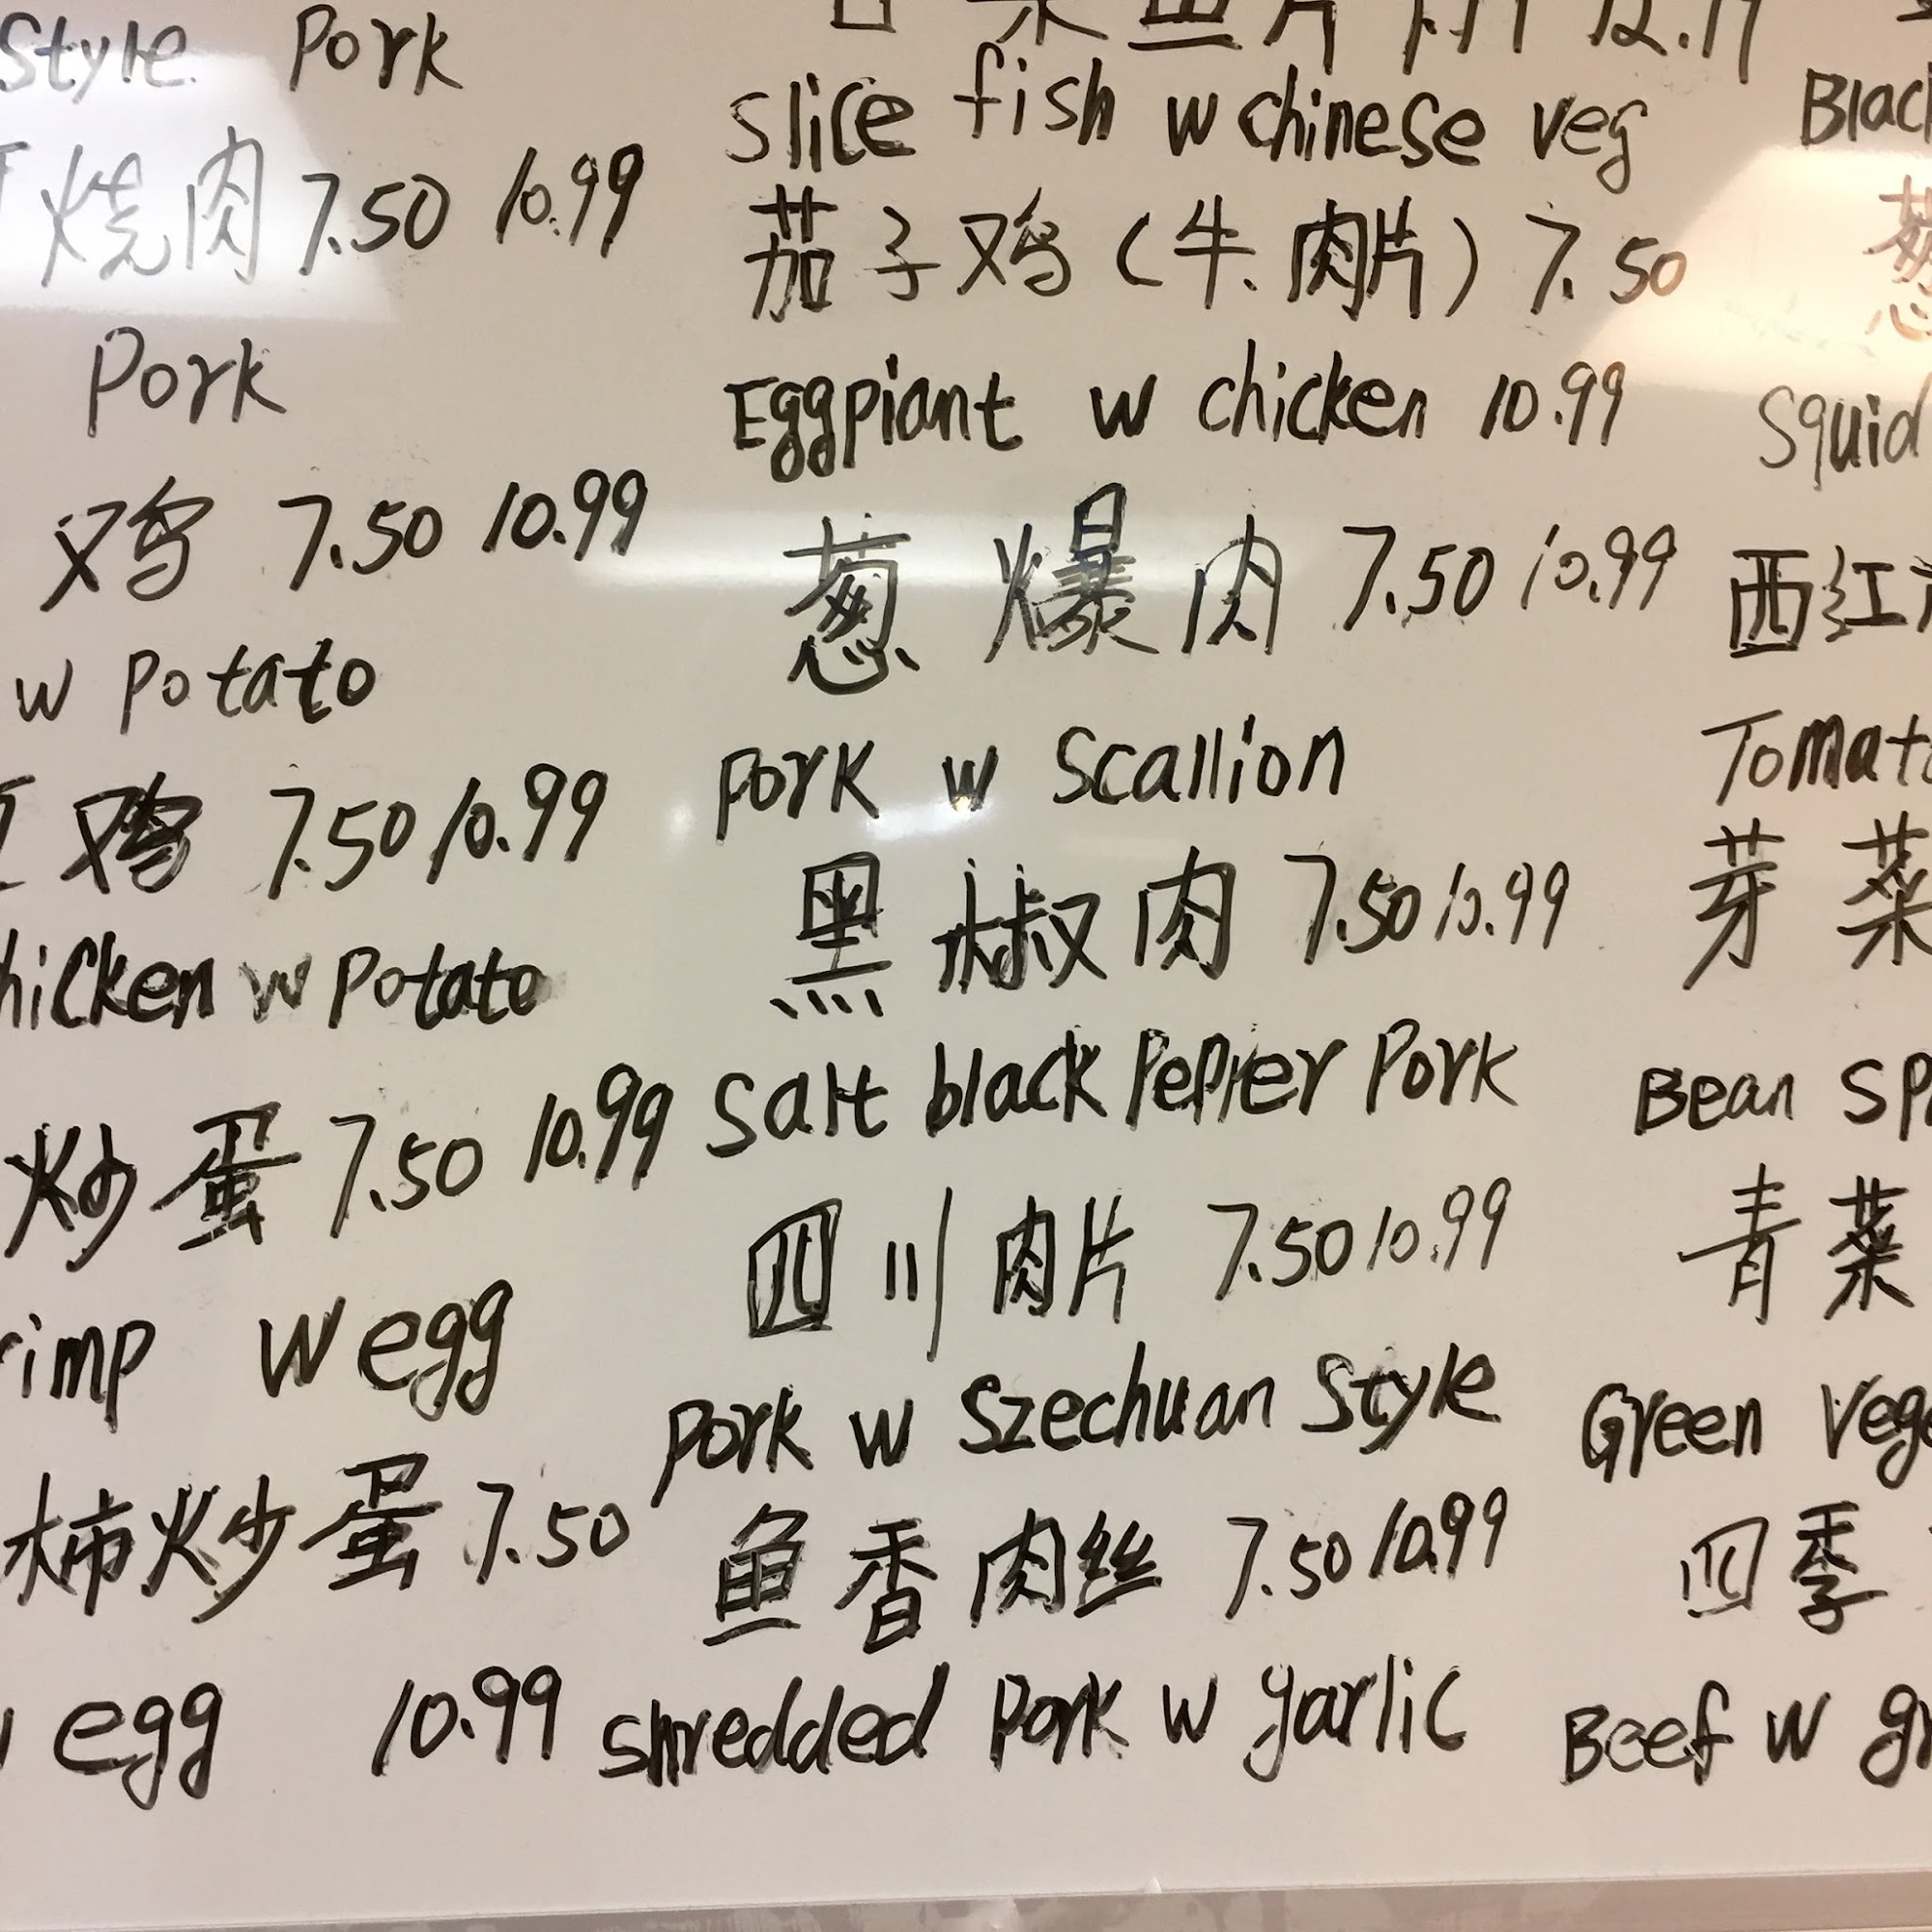 Style Pork
烧肉 7.50 10.99
Pork
鸡 7.50 10.99
w potato
鸡 7.50 10.99
hicken w potato
炒蛋 7.50 10.99
rimp w egg
柿炒蛋 7.50
egg 10.99
菜鱼片 12.
slice fish w chinese veg
茄子鸡(牛、肉片) 7.50
Eggpiant w chicken 10.99
葱爆肉 7.50 10.99
pork w scallion
黑椒肉 7.50 10.99
salt black pepper pork
四川肉片 7.50 10.99
pork w Szechuan Style
鱼香肉丝 7.50 10.99
shredded pork w garlic
Blac
葱
Squid
西红
Tomato
芽菜
Bean sp
青菜
Green Vege
四季
Beef w gr